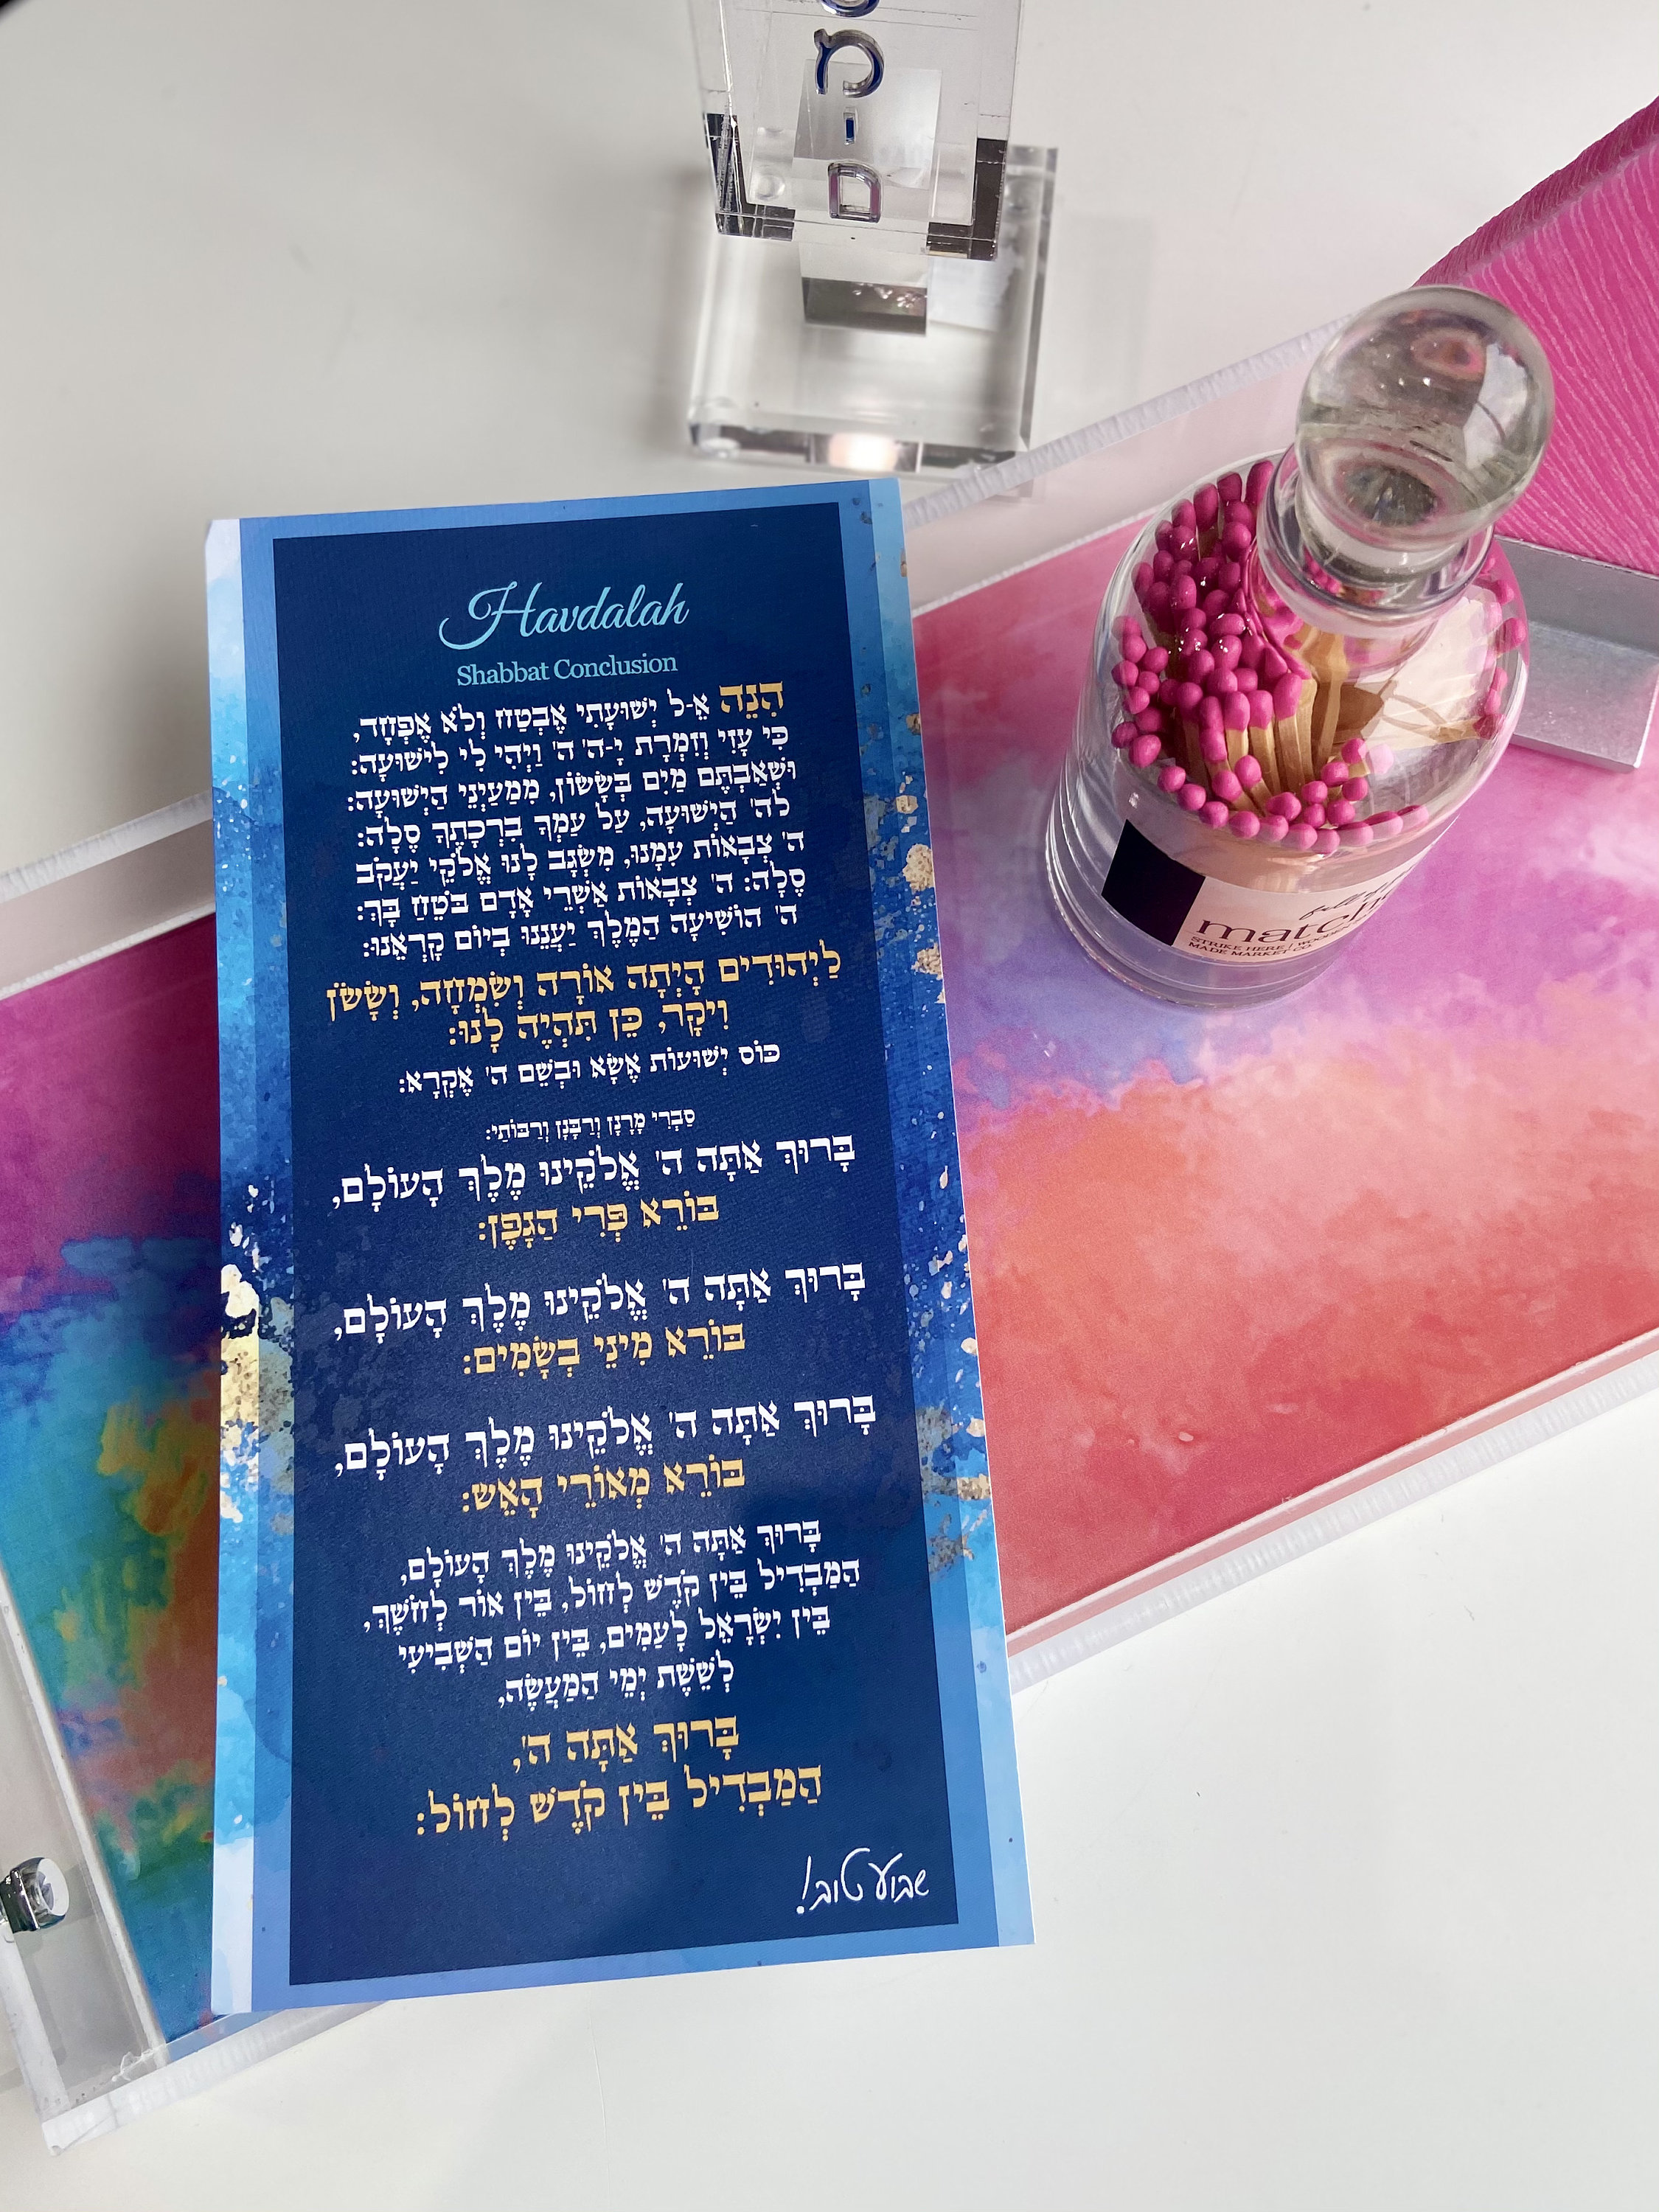 Havdalah
Shabbat Conclusion
הִנֵּה אֵ-ל יְשׁוּעָתִי אֶבְטַח וְלֹא אֶפְחָד,
כִּי עָזִּי וְזִמְרָת יָ-הּ ה' וַיְהִי לִי לִישׁוּעָה:
וּשְׁאַבְתֶּם מַיִם בְּשָׂשׂוֹן, מִמַּעַיְנֵי הַיְשׁוּעָה:
לה' הַיְשׁוּעָה, עַל עַמְּךָ בִרְכָתֶךָ סֶּלָה:
ה' צְבָאוֹת עִמָּנוּ, מִשְׂגָּב לָנוּ אֱלֹקֵי יַעֲקֹב
סֶלָה: ה' צְבָאוֹת אַשְׁרֵי אָדָם בֹּטֵחַ בָּךְ:
ה' הוֹשִׁיעָה הַמֶּלֶךְ יַעֲנֵנוּ בְיוֹם קָרְאֵנוּ:
לַיְּהוּדִים הָיְתָה אוֹרָה וְשִׂמְחָה, וְשָׂשֹׂן
וִיקָר, כֵּן תִּהְיֶה לָּנוּ:
כּוֹס יְשׁוּעוֹת אֶשָּׂא וּבְשֵׁם ה' אֶקְרָא:
סַבְרִי מָרָנָן וְרַבָּנָן וְרַבּוֹתַי:
בָּרוּךְ אַתָּה ה' אֱלֹקֵינוּ מֶלֶךְ הָעוֹלָם,
בּוֹרֵא פְּרִי הַגָּפֶן:
בָּרוּךְ אַתָּה ה' אֱלֹקֵינוּ מֶלֶךְ הָעוֹלָם,
בּוֹרֵא מִינֵי בְשָׂמִים:
בָּרוּךְ אַתָּה ה' אֱלֹקֵינוּ מֶלֶךְ הָעוֹלָם,
בּוֹרֵא מְאוֹרֵי הָאֵשׁ:
בָּרוּךְ אַתָּה ה' אֱלֹקֵינוּ מֶלֶךְ הָעוֹלָם,
הַמַּבְדִּיל בֵּין קֹדֶשׁ לְחוֹל, בֵּין אוֹר לְחֹשֶׁךְ,
בֵּין יִשְׂרָאֵל לָעַמִּים, בֵּין יוֹם הַשְּׁבִיעִי
לְשֵׁשֶׁת יְמֵי הַמַּעֲשֶׂה,
בָּרוּךְ אַתָּה ה',
הַמַּבְדִּיל בֵּין קֹדֶשׁ לְחוֹל:
שבוע טוב!
STRIKE HERE
MADE MARKET CO